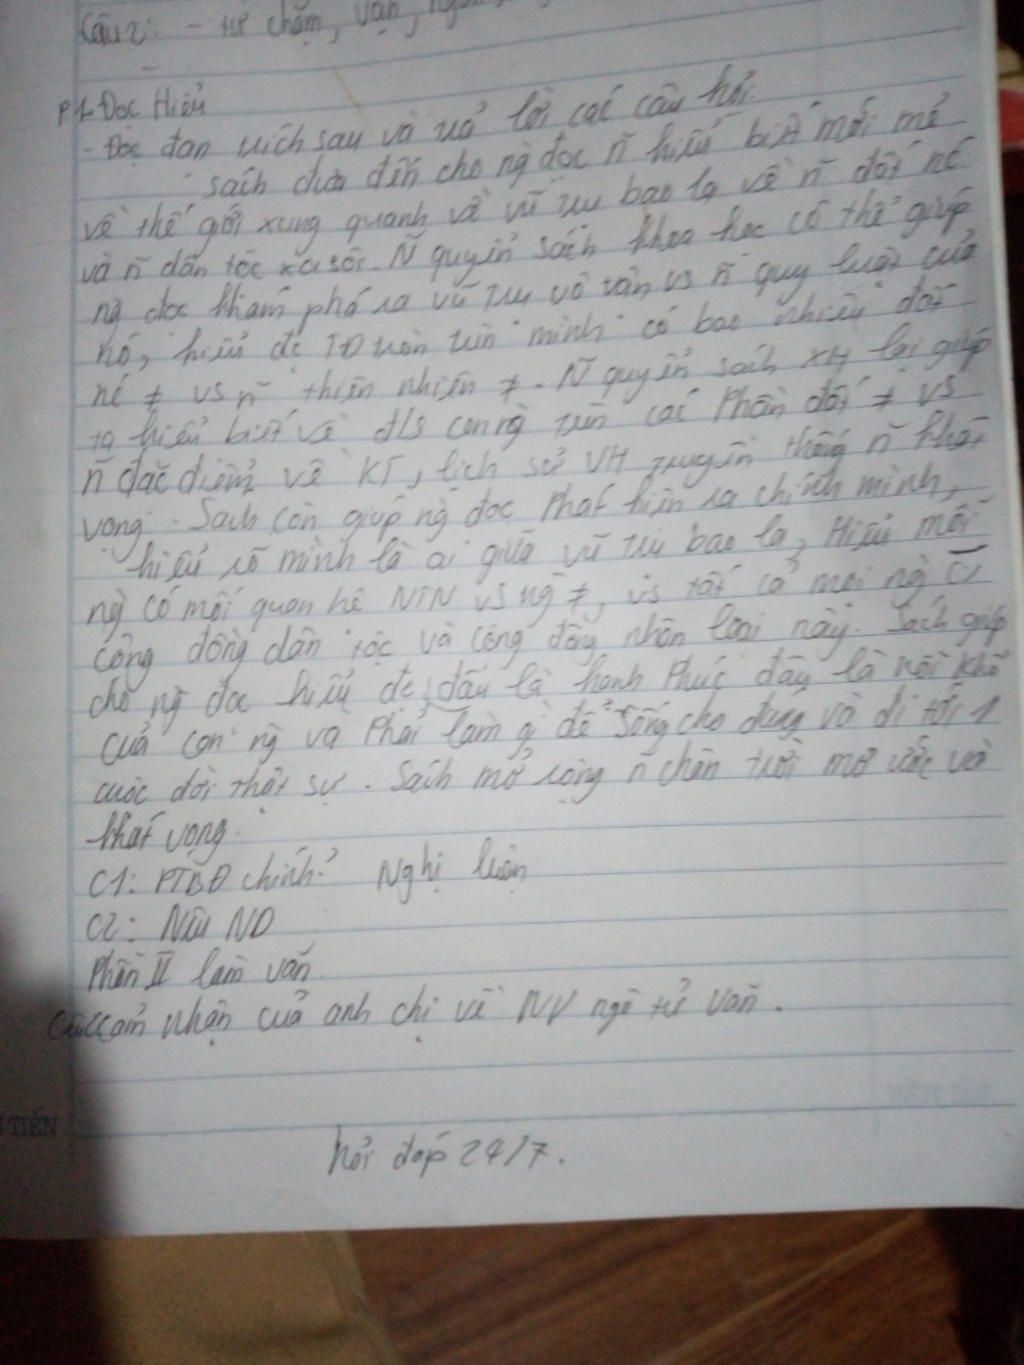 Câu 2: - HP chấm, vạn,
P1. Đọc Hiểu
- Đọc đạn trích sau và trả lời các câu hỏi.
Sách đưa đến cho ng đọc n~ hiểu biết mới mẻ
về thế giới xung quanh, về vũ trụ bao la về n~ đất nc
và n~ dân tộc xa sôi. N~ quyển sách khoa học có thể giúp
ng đọc khám phá ra vũ trụ vô tận vs n~ quy luật của
nó, hiểu đc TĐ tròn trên mình có bao nhiêu đất
nc ≠ vs n~ thiên nhiên ≠. N~ quyển sách XH lại giúp
ta hiểu biết về đ/s con ng trên các phần đất ≠ vs
n~ đặc điểm về KT, lịch sử VH truyền thống n~ khát
vọng. Sách còn giúp ng đọc phát hiện ra chính mình,
hiểu rõ mình là ai giữa vũ trụ bao la, Hiểu mỗi
ng có mối quan hệ NTN vs ng ≠, vs tất cả mọi ng
cộng đồng dân tộc và cộng đồng nhân loại này. Sách giúp
cho ng đọc hiểu đc đâu là hạnh phúc đâu là nỗi khổ
của con ng và phải làm gì để sống cho đúng và đi tới 1
cuộc đời thật sự. Sách mở rộng n~ chân trời mơ ước và
khát vọng.
C1: PTBĐ chính? Nghị luận
C2: Nêu ND
Phần II làm văn
cảm nhận của anh chị về NV ngô tử văn.
TIẾN
hỏi đáp 24/7.